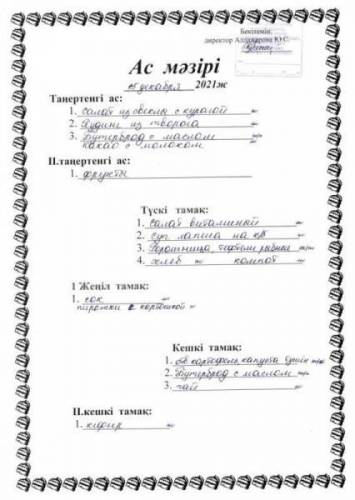 Бекітемін:
директор
Ас мәзірі
декабря 2021ж
Таңертеңгі ас:
1. Салат из свеклы с курагой
2. Пудинг из творога
3. Бутерброд с маслом
какао с молоком
II.таңертеңгі ас:
1. фрукты
Түскі тамақ:
1. Салат витаминный
2. Суп лапша на
3. тефтели рыбные
4. хлеб компот
I Жеңіл тамақ:
1. сок
пирожки с картошкой
Кешкі тамақ:
1. картофель капуста
2. Бутерброд с маслом
3. чай
II.кешкі тамақ:
1. кефир